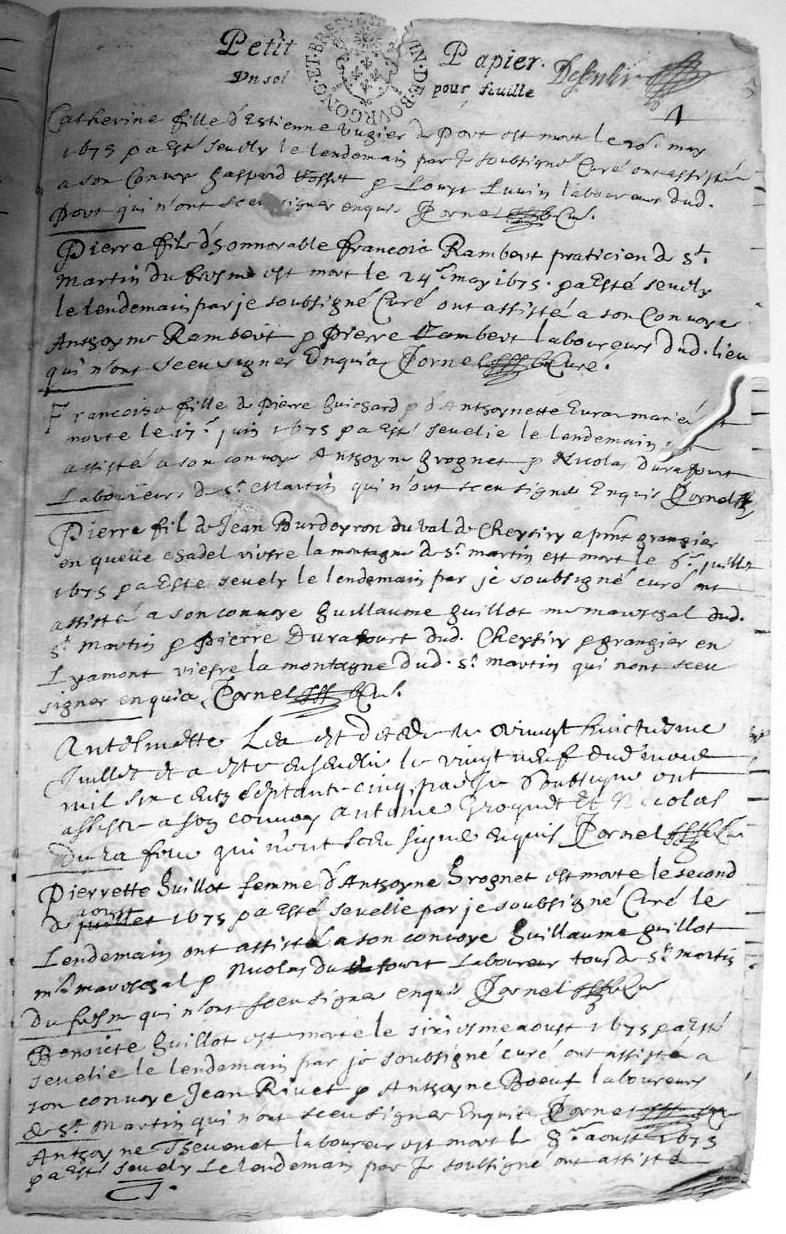 Petit Papier.
Un sol pour feuille
GEN. DE BOURGONG. ET BRES
1
Catherine fille d'Estienne Vugier de Port est mort le 20e may
1675 p a Esté sevely le lendemain par je soubsigné Curé ont assisté
a son Convoy Gaspard p Louys Luvin laboureurs dud.
Port qui n'ont sceu signer enquis Cornet Curé.
Pierre fils d'honnorable francois Rambert praticien de St.
Martin du fresne est mort le 24e may 1675. p a Esté sevely
le lendemain par je soubsigné Curé ont assisté a son Convoye
Anthoyne Rambert p Pierre Lambert laboureurs dud. lieu
qui n'ont sceu signer Enquis Cornet Curé.
Francoise fille de Pierre Guichard p d'Anthoynette Evrar mariés est
morte le 17e juin 1675 p a Esté sevelie le lendemain ont
assisté a son convoye Anthoyne Grognet p Nicolas Durafourt
Laboureurs de St. Martin qui n'ont sceu signer Enquis Cornet
Pierre fil de Jean Burdeyron du val de Cheysiry a pnt grangier
en la montagne de St. martin est mort le 6e juillet
1675 p a Este sevely le lendemain par je soubsigné curé ont
assisté a son convoye Guillaume Guillot me mareschal dud.
St. Martin p Pierre Durafourt dud. Cheysiry p grangier en
Lyamont riefre la montagne dud. St. martin qui n'ont sceu
signer enquis, Cornet Curé.
Anthelmette Lea est decedee le vingt huictiesme
Juillet et a esté ensevelie le vingt neuf dud mois
mil six centz septante-cinq par je soubsigne ont
assisté a son convoy Antoine Grognet Et Nicolas
Durafour qui n'ont sceu signe enquis Cornet Curé
Pierrette Guillot femme d'Anthoyne Grognet est morte le second
aoust
de juillet 1675 p a Esté sevelie par je soubsigné Curé le
Lendemain ont assisté a son convoye Guillaume guillot
me mareschal p Nicolas du fourt Laboureur tous de St martin
du fresne qui n'ont sceu signer enquis Cornet Curé
Benoicte Guillot est morte le sixiesme aoust 1675 p a Esté
sevelie le lendemain par je soubsigné curé ont assisté a
son convoye Jean Rivet p Anthoyne Boeuf laboureurs
de St. Martin qui n'ont sceu signer Enquis Cornet
Anthoyne Thevenet laboureur est mort le 8e aoust 1675
p a Esté sevely Le lendemain par je soubsigné ont assisté